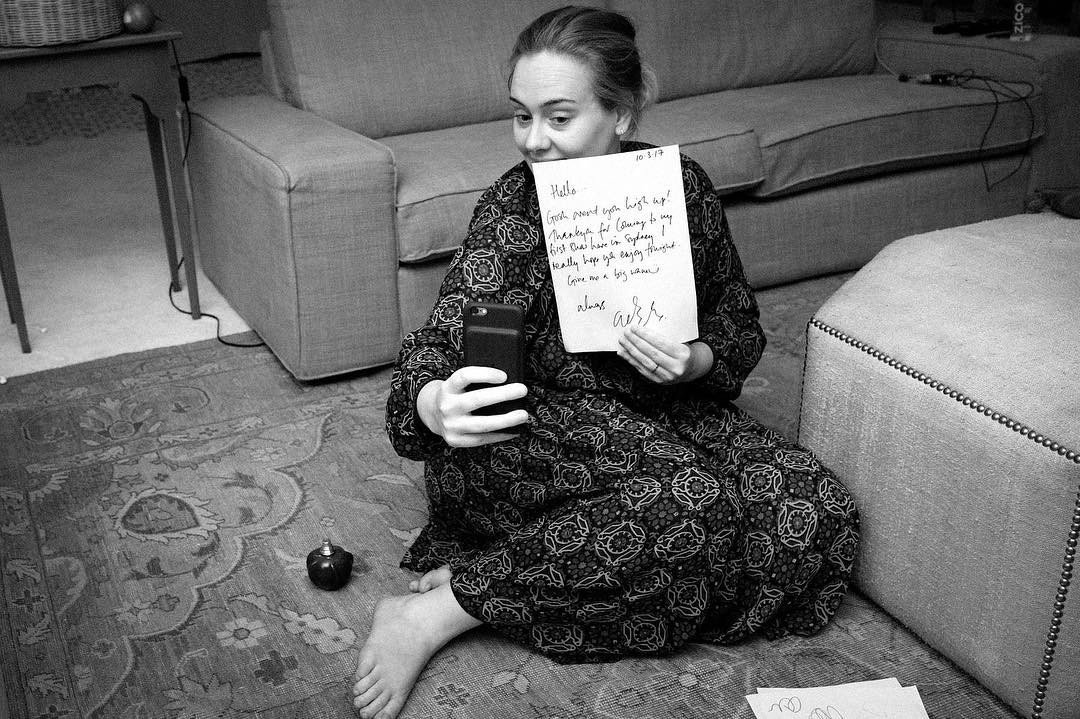 10.3.17
Hello
Gosh aren't you high up!
Thankyou for coming to my
first show here in Sydney! I
really hope you enjoy tonight.
Give me a big wave
always
ZICO